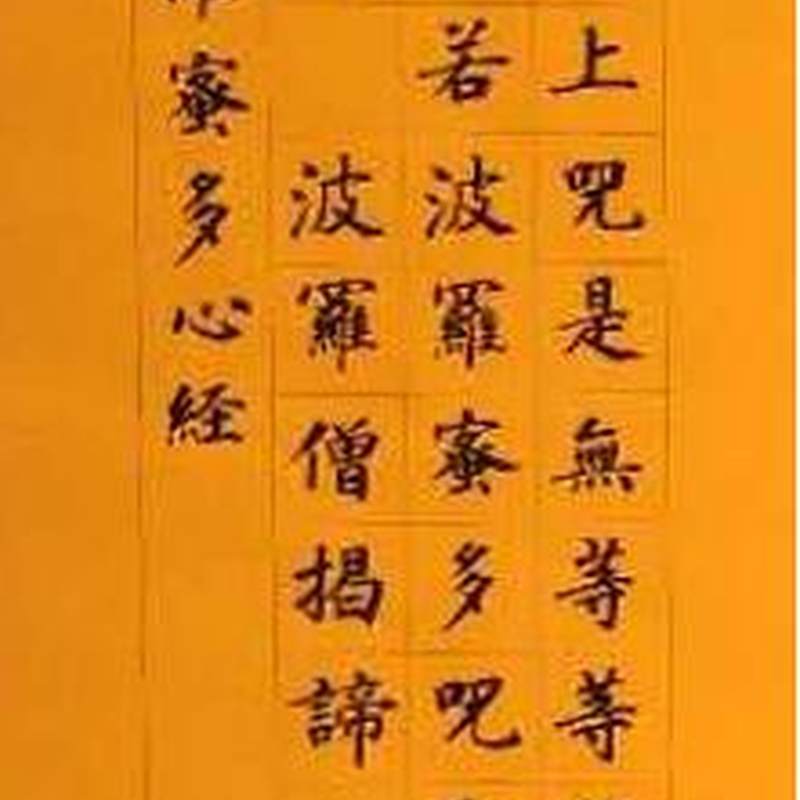 上咒是無等等
若波羅蜜多咒
波羅僧揭諦
蜜多心経